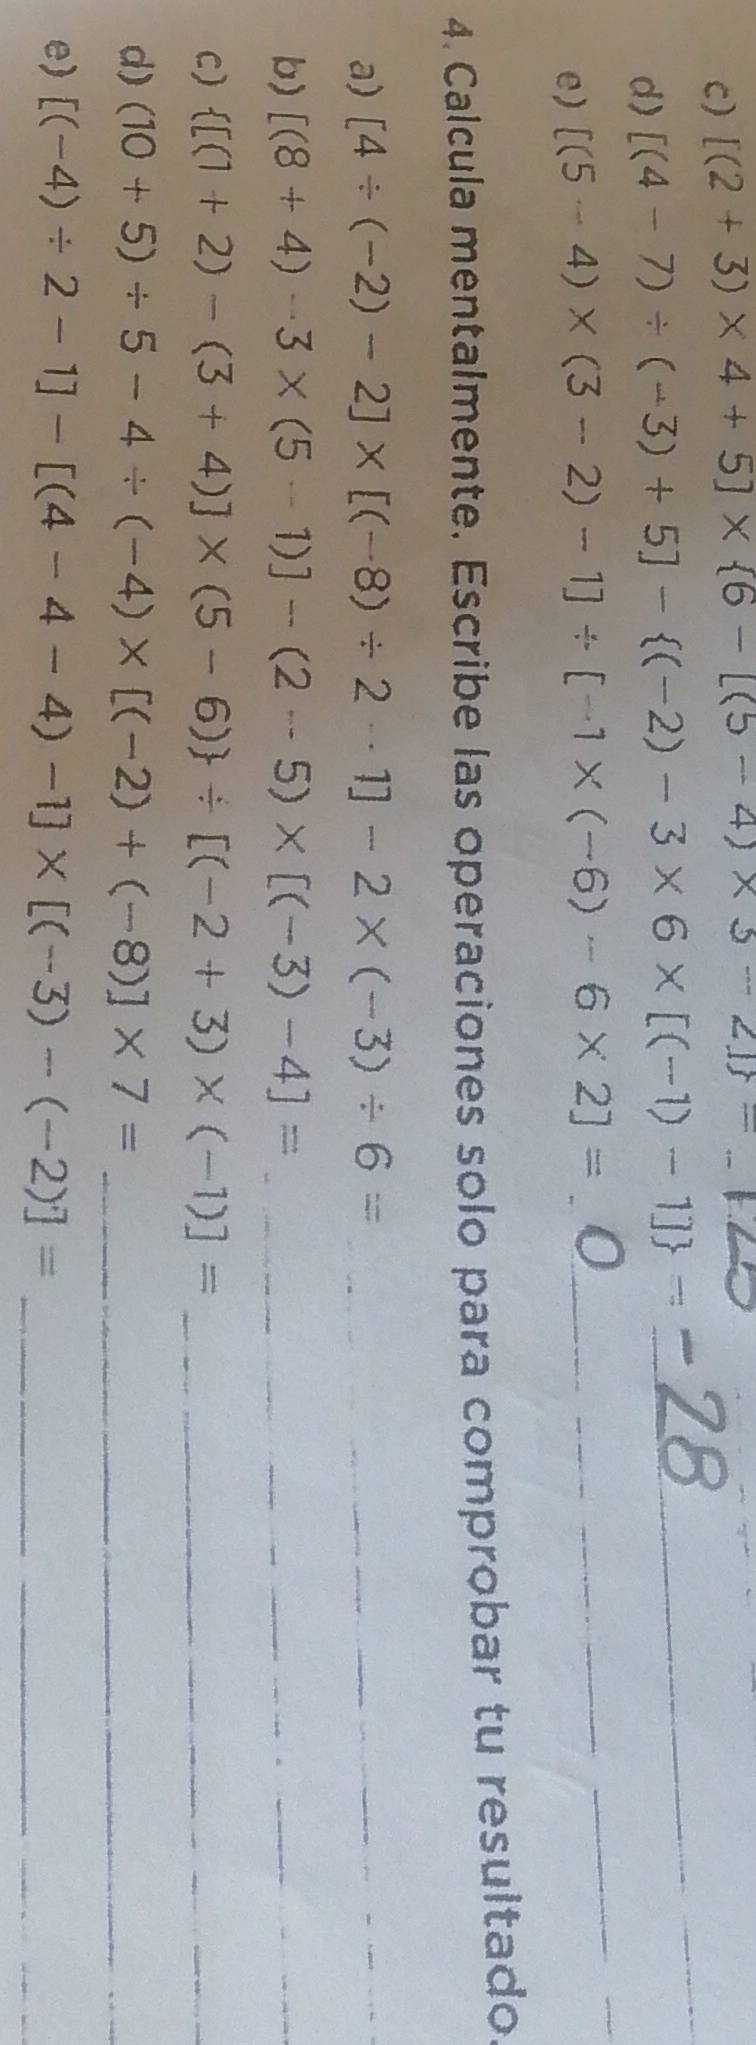 c) [(2 + 3) × 4 + 5] × {6 − [(5 − 4) × 3 − 2]} = 125
d) [(4 − 7) ÷ (−3) + 5] − {(−2) − 3 × 6 × [(−1) − 1]} = -28
e) [(5 − 4) × (3 − 2) − 1] ÷ [−1 × (−6) − 6 × 2] = 0
4. Calcula mentalmente. Escribe las operaciones solo para comprobar tu resultado.
a) [4 ÷ (−2) − 2] × [(−8) ÷ 2 − 1] − 2 × (−3) ÷ 6 =
b) [(8 + 4) − 3 × (5 − 1)] − (2 − 5) × [(−3) − 4] =
c) {[(1 + 2) − (3 + 4)] × (5 − 6)} ÷ [(−2 + 3) × (−1)] =
d) (10 + 5) ÷ 5 − 4 ÷ (−4) × [(−2) + (−8)] × 7 =
e) [(−4) ÷ 2 − 1] − [(4 − 4 − 4) −1] × [(−3) − (−2)] =